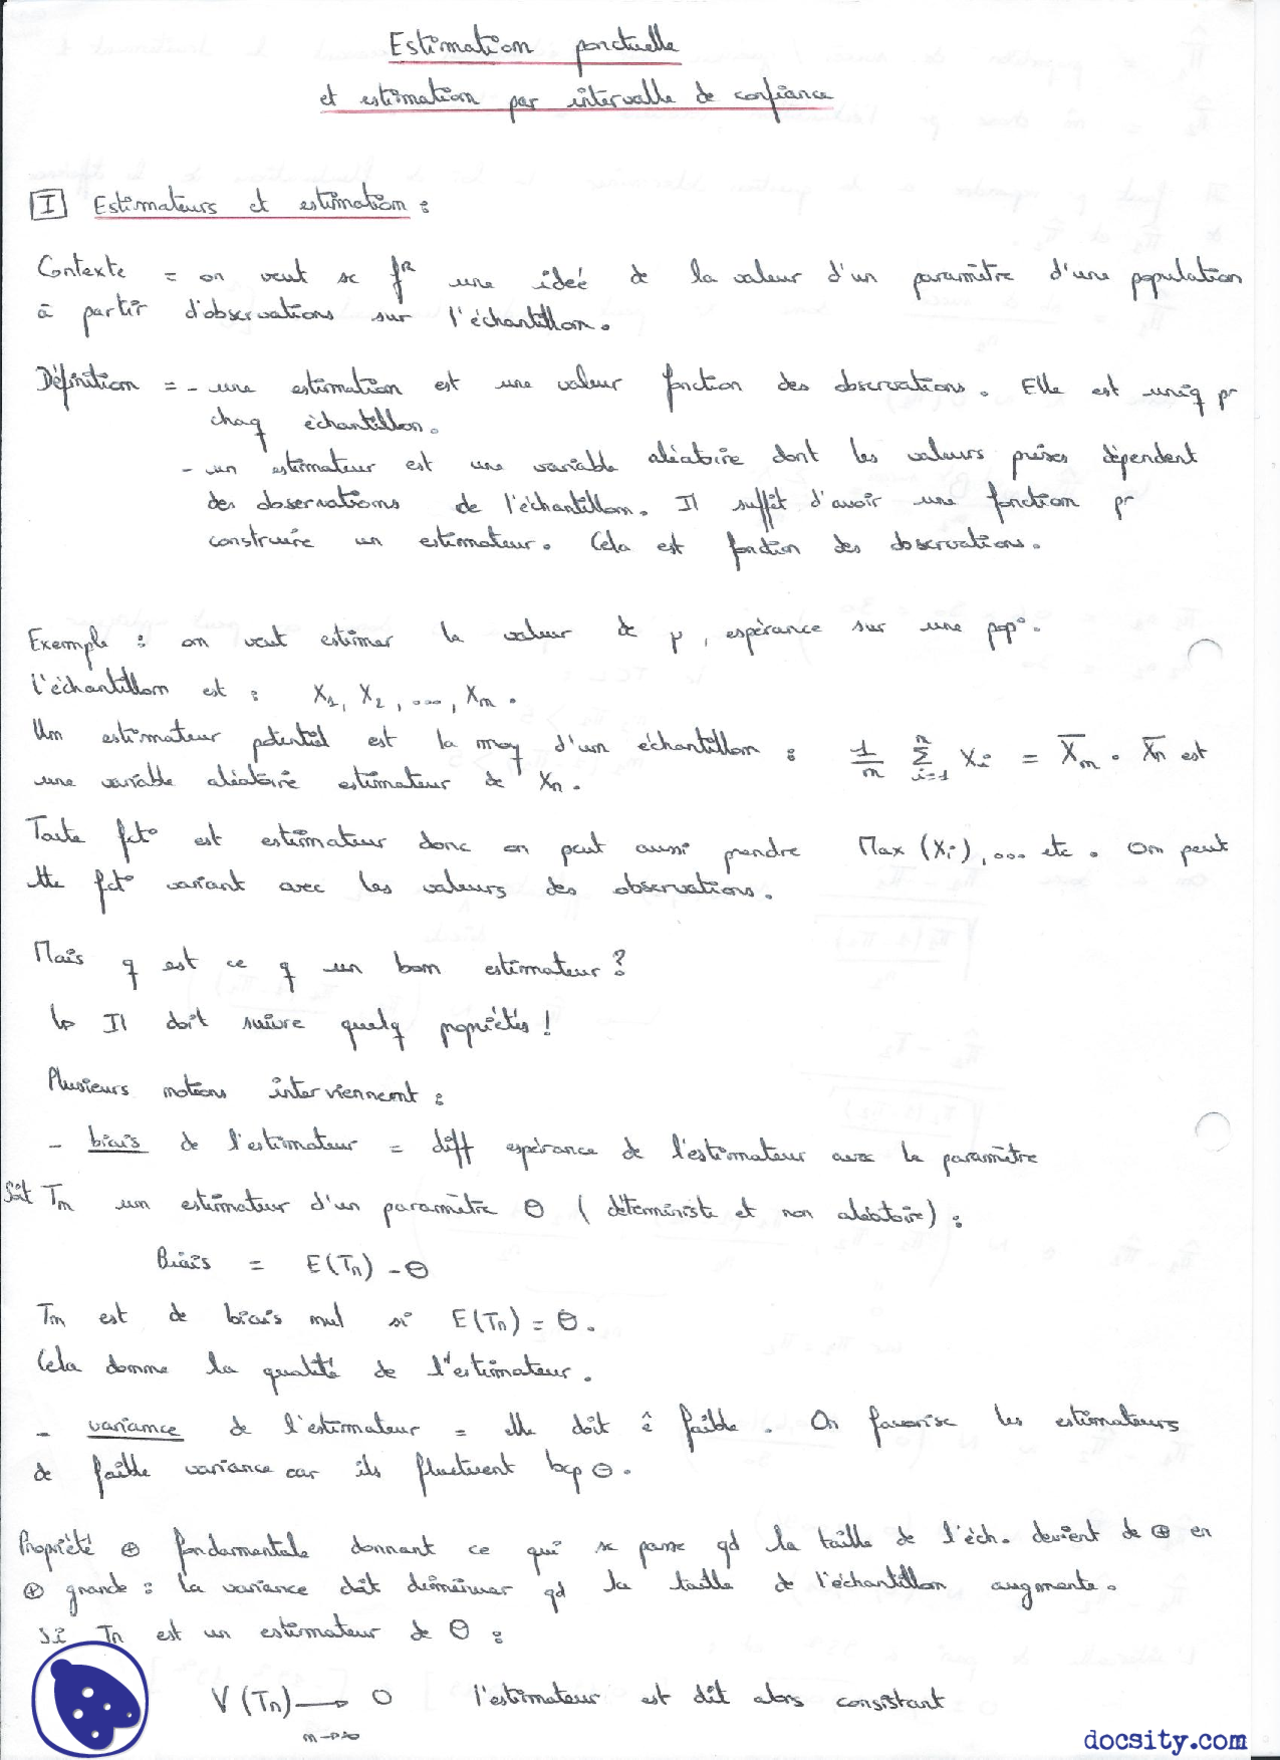 Estimation ponctuelle
et estimation par intervalle de confiance
I Estimateurs et estimation :
Contexte = on veut se fR une ideé de la valeur d'un paramètre d'une population
à partir d'observations sur l'échantillon.
Définition = - une estimation est une valeur fonction des observations. Elle est uniq pr
chaq échantillon.
- un estimateur est une variable aléatoire dont les valeurs prises dépendent
des observations de l'échantillon. Il suffit d'avoir une fonction pr
construire un estimateur. Cela est fonction des observations.
Exemple : on veut estimer la valeur de μ, espérance sur une pop°.
L'échantillon est : X1, X2, ..., Xn.
Un estimateur potentiel est la moy d'un échantillon : 1/n Σ_{i=1}^{n} Xi = X̄n. X̄n est
une variable aléatoire estimateur de Xn.
Toute fct° est estimateur donc on peut aussi prendre Max (Xi), ... etc. On peut
tte fct° variant avec les valeurs des observations.
Mais q est ce q un bon estimateur ?
↳ Il doit suivre quelq propriétés !
Plusieurs notions interviennent :
- biais de l'estimateur = diff espérance de l'estimateur avec le paramètre
Soit Tn un estimateur d'un paramètre θ ( déterministe et non aléatoire) :
Biais = E(Tn) - θ
Tn est de biais nul si E(Tn) = θ.
Cela donne la qualité de l'estimateur.
- variance de l'estimateur = elle doit ê faible. On favorise les estimateurs
de faible variance car ils fluctuent bcp θ.
Propriété ⊕ fondamentale donnant ce qui se passe qd la taille de l'éch. devient de ⊕ en
⊕ grande : la variance doit diminuer qd la taille de l'échantillon augmente.
Si Tn est un estimateur de θ :
V(Tn) → 0 l'estimateur est dit alors consistant
n→+∞
docsity.com